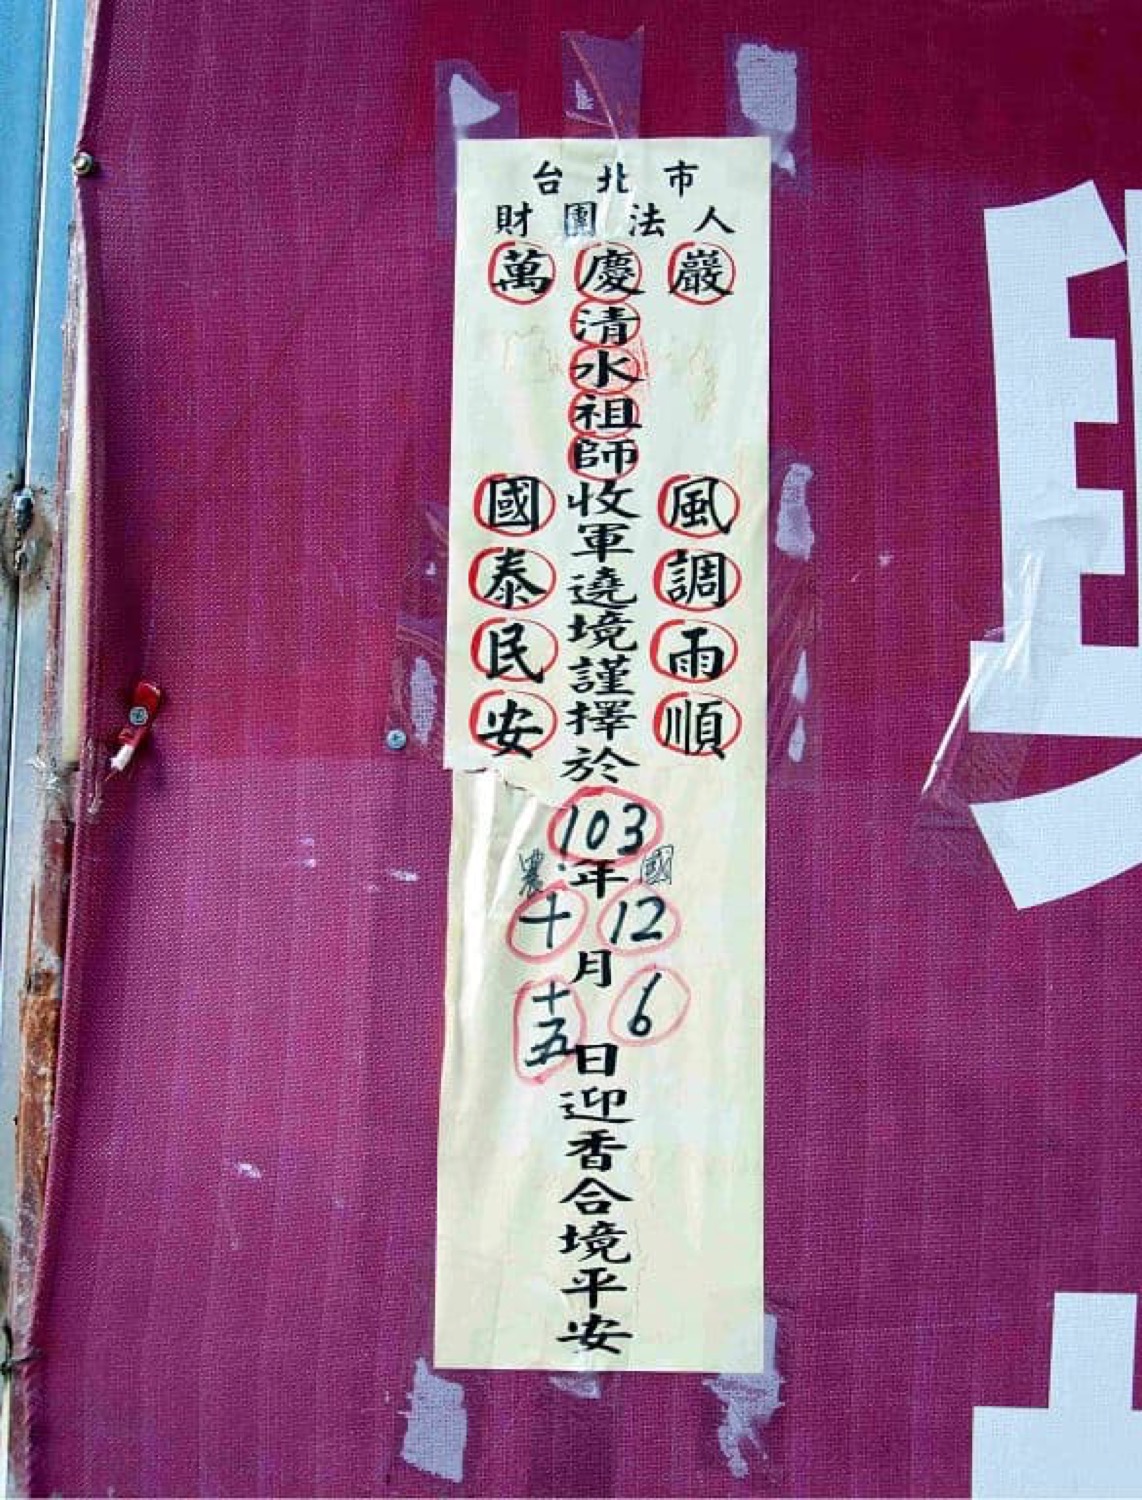 台北市
財團法人
萬慶巖
風調雨順
清水祖師收軍遶境謹擇於103年
國12
農十
月
6
十五
日迎香合境平安
國泰民安